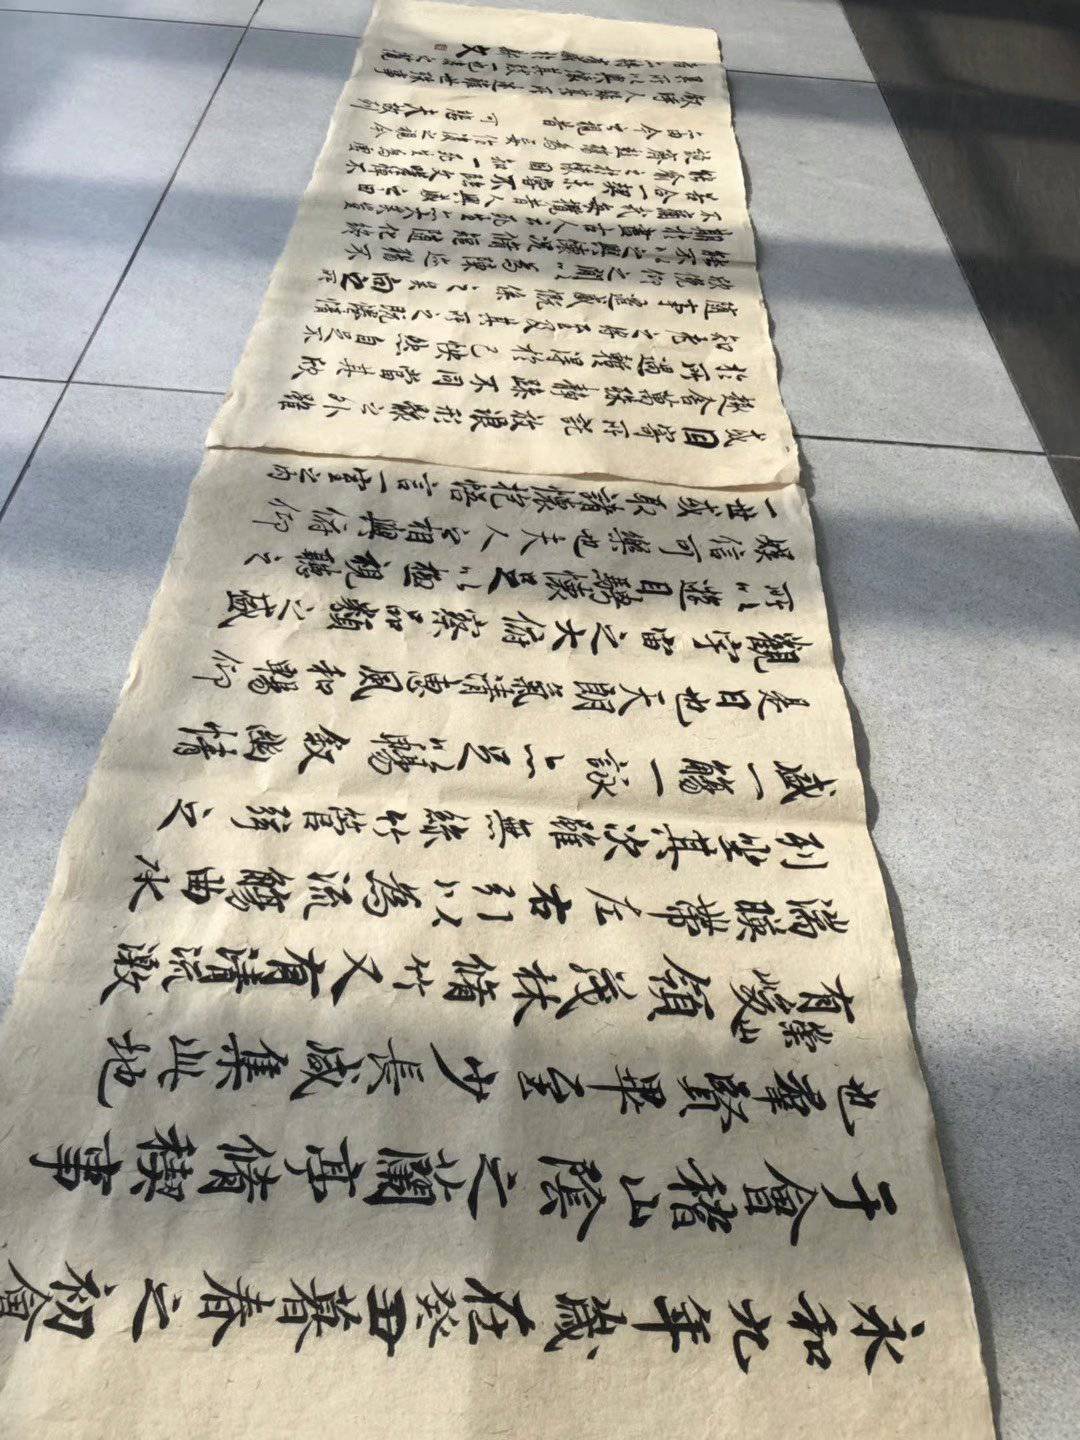 永和九年歲在癸丑暮春之初會
于會稽山陰之蘭亭脩稧事
也羣賢畢至少長咸集此地
有崇山峻領茂林脩竹又有清流激
湍暎帶左右引以為流觴曲水
列坐其次雖無絲竹管弦之
盛一觴一詠亦足以暢敘幽情
是日也天朗氣清惠風和暢仰
觀宇宙之大俯察品類之盛
所以遊目騁懷足以極視聽之
娛信可樂也夫人之相與俯仰
一世或取諸懷抱悟言一室之內
或因寄所託放浪形骸之外雖
趣舍萬殊靜躁不同當其欣
於所遇暫得於己怏然自足不
知老之將至及其所之既惓情
隨事遷感慨係之矣向之所
欣俛仰之閒以為陳迹猶不
能不以之興懷況脩短隨化終
期於盡古人云死生亦大矣豈
不痛哉每攬昔人興感之由
若合一契未嘗不臨文嗟悼不
能喻之於懷固知一死生為虛
誕齊彭殤為妄作後之視今
亦由今之視昔可悲夫故列
敘時人錄其所述雖世殊事
異所以興懷其致一也後之覽
者亦將有感於斯文